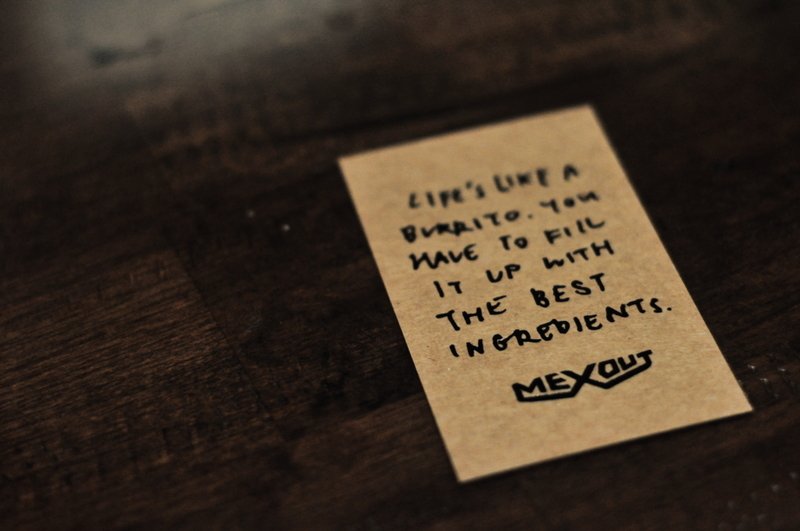 LIFE'S LIKE A
BURRITO. YOU
HAVE TO FILL
IT UP WITH
THE BEST
INGREDIENTS.
MEXOUT